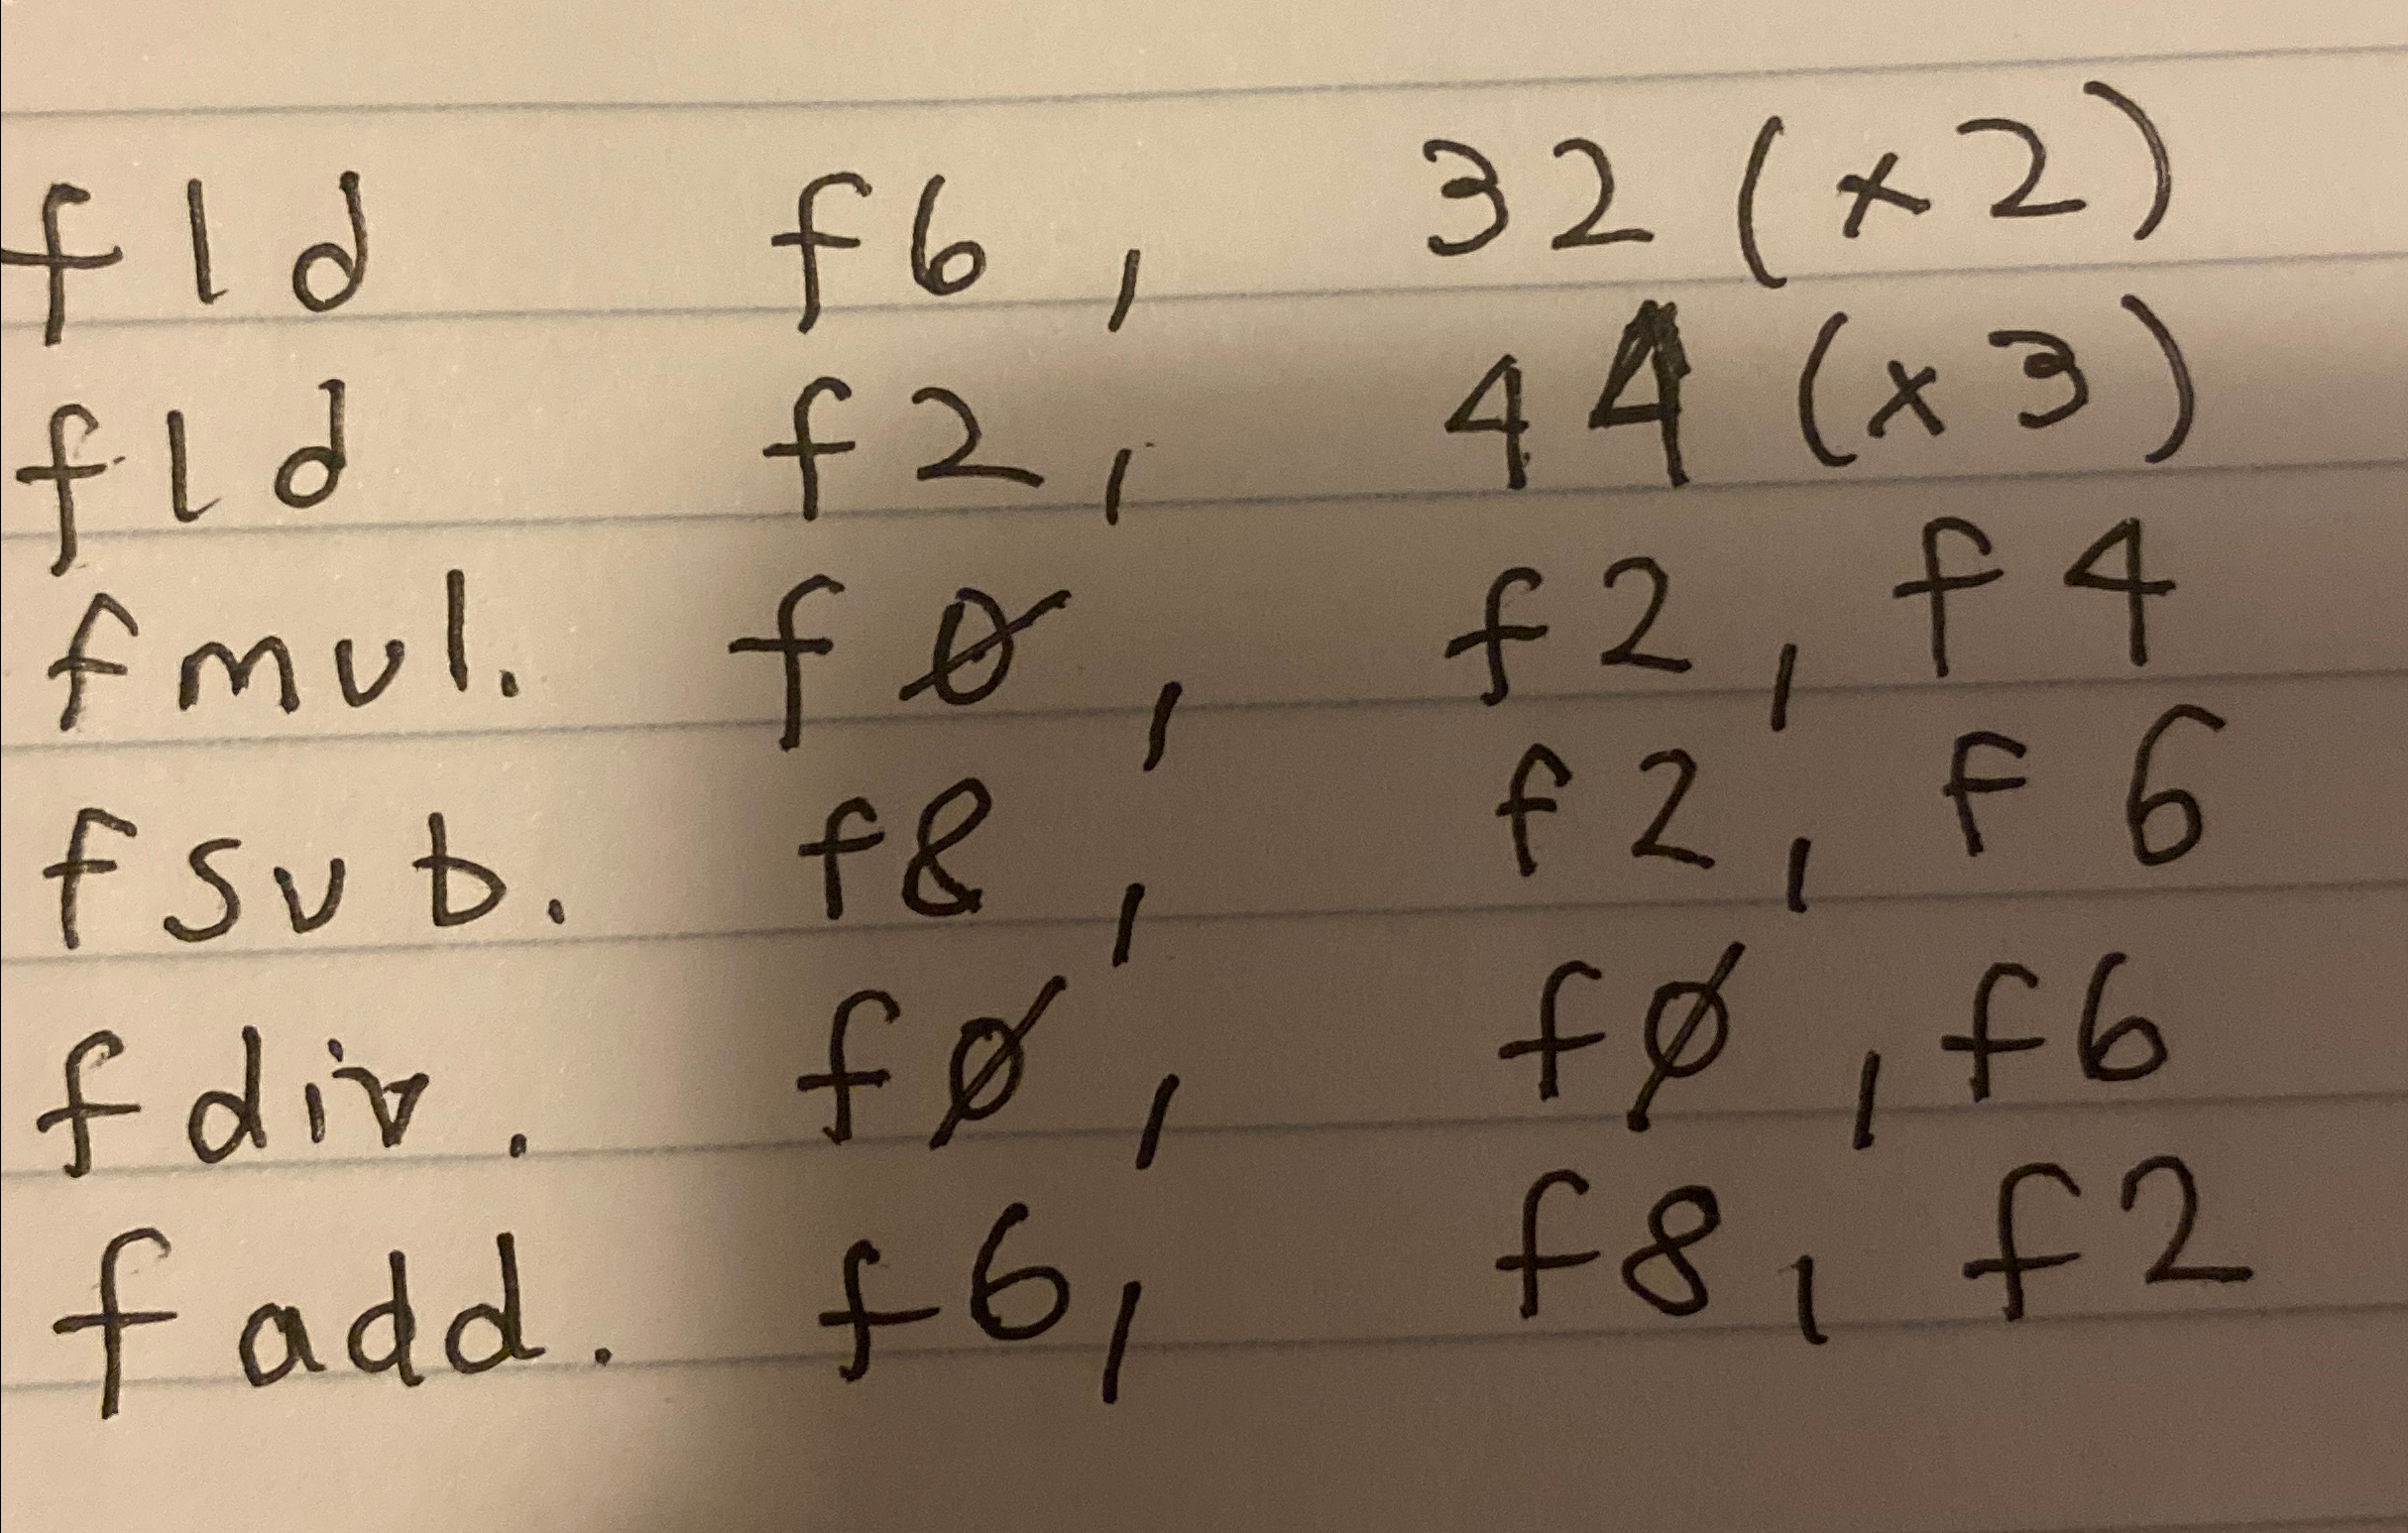 fld f6, 32(x2)
fld f2, 44(x3)
fmul. f0, f2, f4
fsub. f8, f2, f6
fdiv. f0, f0, f6
fadd. f6, f8, f2